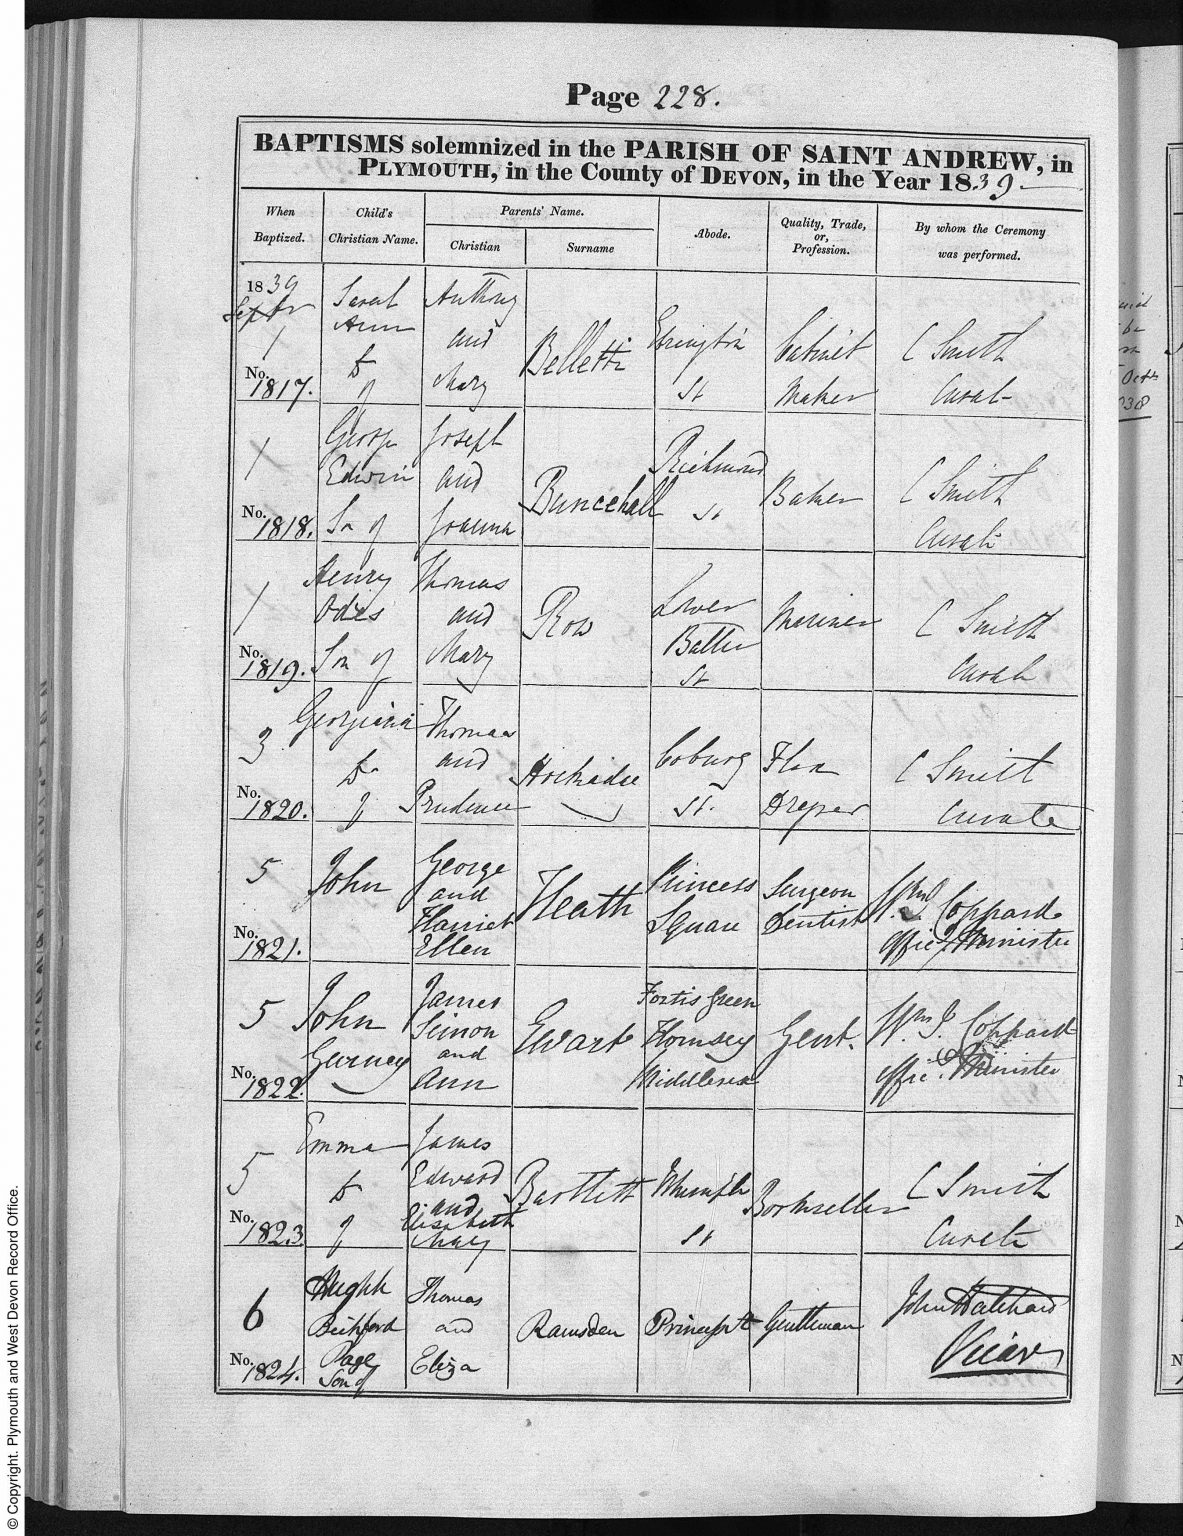 Page 228.
BAPTISMS solemnized in the PARISH OF SAINT ANDREW, in
PLYMOUTH, in the County of DEVON, in the Year 1839.
When Baptized. Child's Christian Name. Parents' Name. Christian Surname Abode. Quality, Trade, or, Profession. By whom the Ceremony was performed.
1839 Sarah Anthony
Septr Ann and Belletti Ebrington Cabinet C Smith
1 Dr of Mary St Maker Curate
No. 1817.
1 George Joseph Richmond
Edwin and Buncehall St Baker C Smith
No. 1818. Sn of Joanna Curate
1 Henry Thomas Lower
and Row Batter Mariner C Smith
No. 1819. Sn of Mary St Curate
3 Georgiana Thomas
Dr and Hockadee Coburg Flax C Smith
No. 1820. of Prudence St. Draper Curate
5 John George Princess Surgeon Wm J. Coppard
and Heath Square Dentist Offic. Minister
Harriet
No. 1821. Ellen
5 John James Fortis Green
Gurney Simon Ewart Hornsey Gent. Wm J. Coppard
and Middlesex Offic. Minister
No. 1822. Ann
5 Emma James
Dr Edward Bartlett Whimple Bookseller C Smith
and
No. 1823. of Elizabeth St Curate
Mary
6 Hugh Thomas John Hatchard
Beckford and Ramsden Princess St Gentleman Vicar
No. 1824. Page Eliza
Son of
© Copyright. Plymouth and West Devon Record Office.